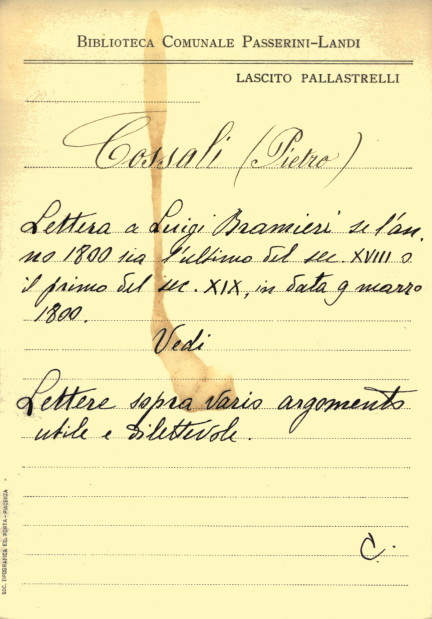 BIBLIOTECA COMUNALE PASSERINI-LANDI
LASCITO PALLASTRELLI
Cossali (Pietro)
Lettera a Luigi Bramieri se l'an-
no 1800 sia l'ultimo del sec. XVIII o
il primo del sec. XIX, in data 9 marzo
1800.
Vedi
Lettere sopra vario argomento
utile e dilettevole.
C.
SOC. TIPOGRAFICA ED. PORTA - PIACENZA